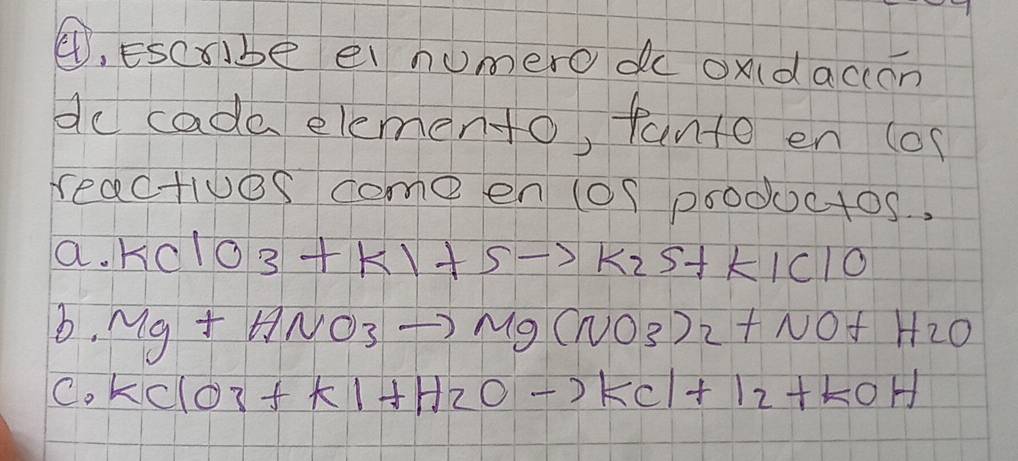 a. Escribe el numero de oxidación
de cada elemento, tanto en los
reactivos como en los productos.
a. KClO3 + KI + S -> K2S + KIClO
b. Mg + HNO3 -> Mg(NO3)2 + NO + H2O
c. KClO3 + KI + H2O -> KCl + I2 + KOH